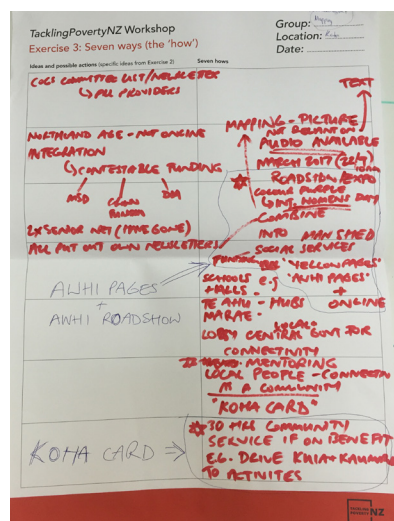 TacklingPovertyNZ Workshop
Exercise 3: Seven ways (the 'how')
Group: Poppy
Location:
Date:
Ideas and possible actions (specific ideas from Exercise 2)
Seven hows
COGS COMMITTEE LIST/NEWSLETTER
↳ ALL PROVIDERS
NORTHLAND AGE - NOT ONLINE
INTEGRATION
↳ CONTESTABLE FUNDING
MSD
DIA
2x SENIOR NET (HAVE GONE)
ALL PUT OUT OWN NEWSLETTERS
AWHI PAGES
+
AWHI ROADSHOW
KOHA CARD ⇒
TEXT
MAPPING - PICTURE
NOT RELIANT ON
AUDIO AVAILABLE
MARCH 2017
ROADSHOW/EXPO
COLOUR PURPLE
↳ INT. WOMENS DAY
COMBINE
INTO MAN SPHED
SOCIAL SERVICES
"YELLOW PAGES"
SCHOOLS e.g "AWHI PAGES"
+ HALLS. +
TE AHU - HUBS ONLINE
MARAE.
LOCAL
LOBBY CENTRAL GOVT FOR
CONNECTIVITY
MENTORING
LOCAL PEOPLE - CONNECTION
AS A COMMUNITY
"KOHA CARD"
30 HRS COMMUNITY
SERVICE IF ON BENEFIT
E.G. DRIVE KUIA + KAUMATUA
TO ACTIVITES
TACKLING
POVERTY NZ